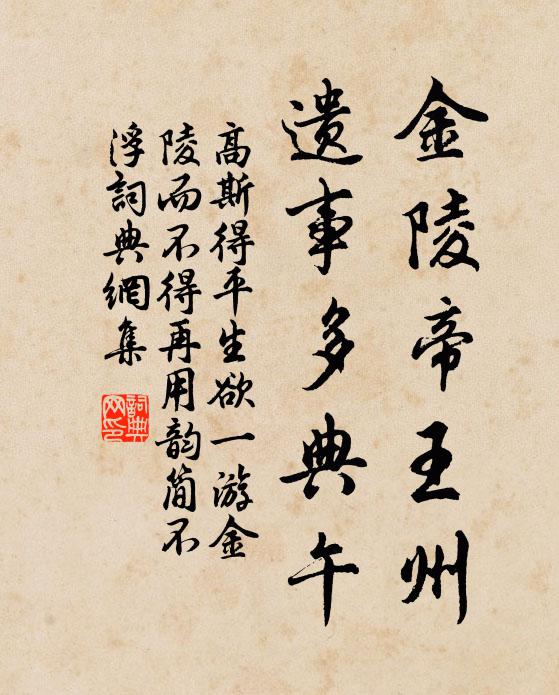 金陵帝王州
遗事多典午
高斯得平生欲一游金
陵而不得再用韵简不
浮詞典網集
詞典
网印